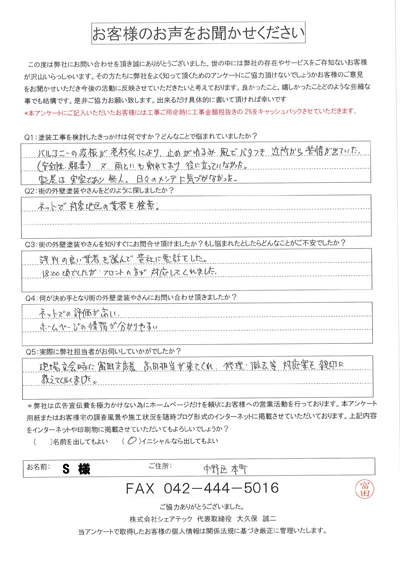 お客様のお声をお聞かせください
この度は弊社にお問い合わせを頂き誠にありがとうございました。世の中には弊社の存在やサービスをご存知ないお客様
が沢山いらっしゃいます。その方たちに弊社をよく知って頂くためのアンケートにご協力頂けないでしょうかお客様のご意見
をお聞かせいただき今後の活動に反映させていただきたいと考えております。良かったこと、嬉しかったことどのような些細な
事でも結構です。是非ご協力お願い致します。出来るだけ具体的に書いて頂ければ幸いです
*本アンケートにご記入いただいたお客様には工事ご用命時に工事金額税抜きの 2%をキャッシュバックさせていただきます。
Q1:塗装工事を検討したきっかけは何ですか?どんなことで悩まれていましたか?
バルコニーの波板が老朽化により、止めがゆるみ 風でバタつき 近所から苦情が出ていた。
(安全性・騒音) で、雨といも割れており 役に立っていなかった。
実家は 空家であり 無人。日々のメンテに気づかなかった。
Q2:街の外壁塗装やさんをどのように探しましたか?
ネットで対象地区の業者を検索。
Q3:街の外壁塗装やさんを知りすぐにお問合せ頂けましたか?もし悩まれたとしたらどんなことがご不安でしたか?
評判の良い業者を選んで貴社に電話をした。
18:00頃でしたが、フロントの方が対応してくれました。
Q4:何が決め手となり街の外壁塗装やさんにお問い合わせ頂きましたか?
ネットでの評価が高い。
ホームページの情報が分かりやすい
Q5:実際に弊社担当者がお伺いしていかがでしたか?
現場立会時に 富田支店長、高田担当が来てくれ、修理・撤去等 対応案を親切に
教えてくれました。
*弊社は広告宣伝費を極力かけない為にホームページだけを頼りにお客様への営業活動を行っております。本アンケート
用紙またはお客様宅の調査風景や施工状況を随時ブログ形式のインターネットに掲載させていただいております。上記内容
をインターネットや印刷物に掲載させていただいてもよろしいでしょうか?
( )名前を出してもよい ( O )イニシャルなら出してもよい
お名前: S 様 ご住所: 中野区本町
FAX 042-444-5016
富田
ご協力ありがとうございました。
株式会社シェアテック 代表取締役 大久保 誠二
当アンケートで取得したお客様の個人情報は関係法規に基づき厳正に管理いたします。